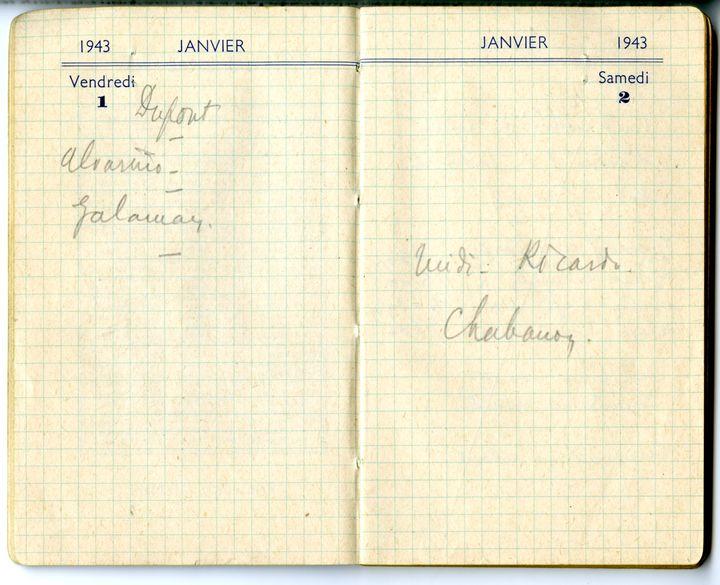 1943 JANVIER
Vendredi
1
Dupont
Alvariño -
Galaman.
JANVIER 1943
Samedi
2
Midi - Ricardo.
Chabanon.